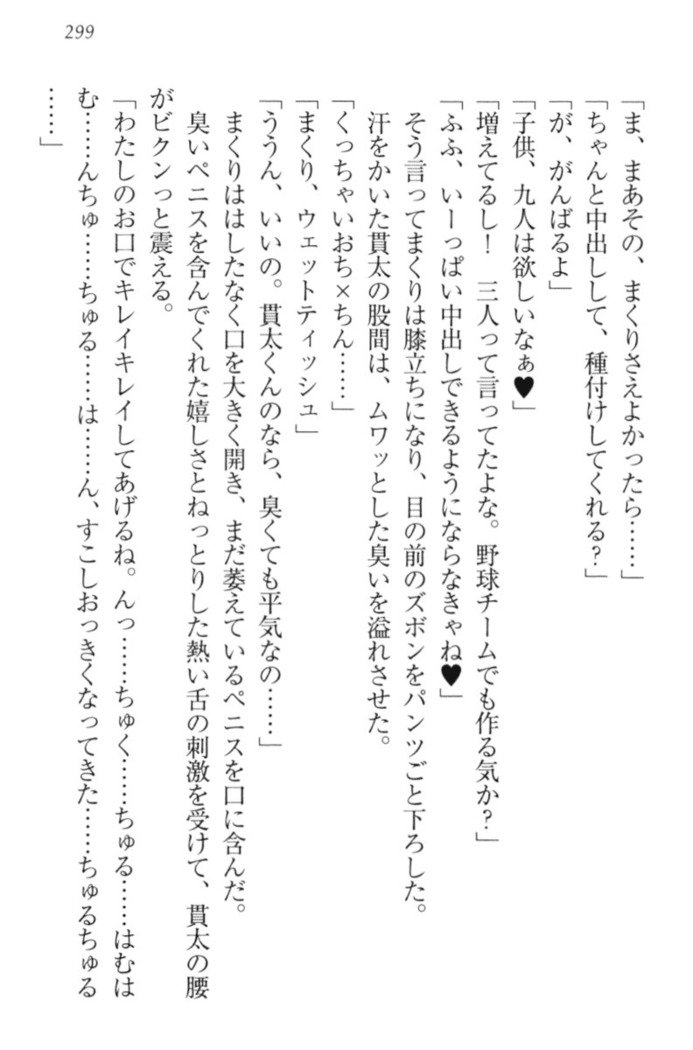 299
「ま、まあその、まくりさえよかったら……」
「ちゃんと中出しして、種付けしてくれる？」
「が、がんばるよ」
「子供、九人は欲しいなぁ♥」
「増えてるし！　三人って言ってたよな。野球チームでも作る気か？」
「ふふ、いーっぱい中出しできるようにならなきゃね♥」
そう言ってまくりは膝立ちになり、目の前のズボンをパンツごと下ろした。
汗をかいた貫太の股間は、ムワッとした臭いを溢れさせた。
「くっちゃいおち×ちん……」
「まくり、ウェットティッシュ」
「ううん、いいの。貫太くんのなら、臭くても平気なの……」
まくりははしたなく口を大きく開き、まだ萎えているペニスを口に含んだ。
臭いペニスを含んでくれた嬉しさとねっとりした熱い舌の刺激を受けて、貫太の腰
がビクンっと震える。
「わたしのお口でキレイキレイしてあげるね。んっ……ちゅく……ちゅる……はむは
む……んちゅ……ちゅる……は……ん、すこしおっきくなってきた……ちゅるちゅる
……」